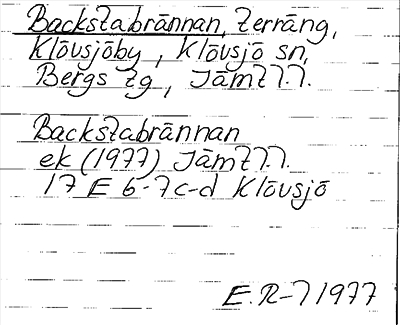 Backstabrännan, terräng,
Klövsjöby, Klövsjö sn,
Bergs tg, Jämtl.l.
Backstabrännan
ek (1977) Jämtl.l.
17 E 6-7c-d Klövsjö
E.R-l 1977